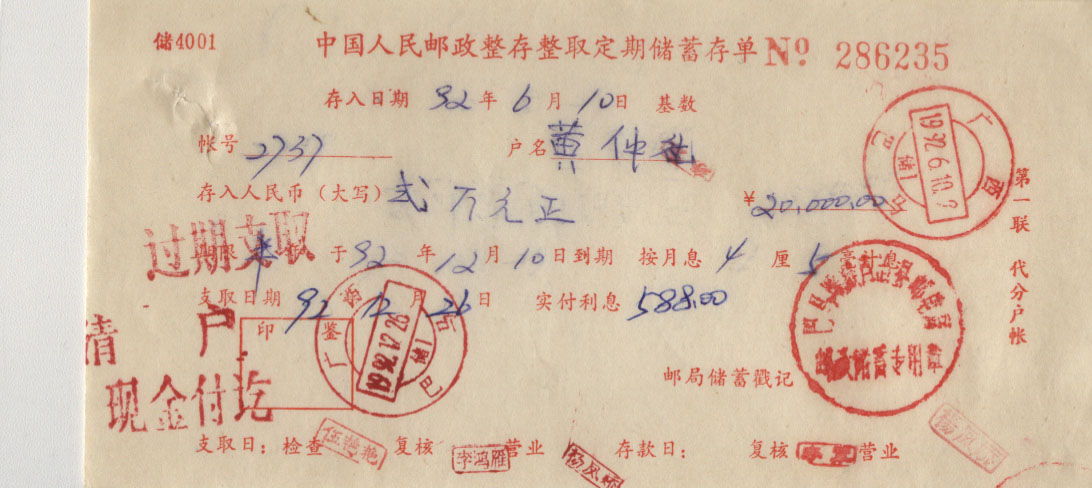 储4001 中国人民邮政整存整取定期储蓄存单 Nº 286235
存入日期 92年6月10日 基数
帐号 2737 户名 黄仲
存入人民币（大写）贰万元正 ¥20,000.00
第一联 代分户帐
过期支取
于92年12月10日到期 按月息4厘5毫计息
支取日期 92 12月26日 实付利息 588.00
清户
印鉴
现金付讫
邮局储蓄戳记
邮政储蓄专用章
广西
1992.6.10
储
巴
广
1992.12.26
储
巴
支取日：检查 复核 李鸿雁 营业 杨凤娇 存款日： 复核 营业 杨凤娇